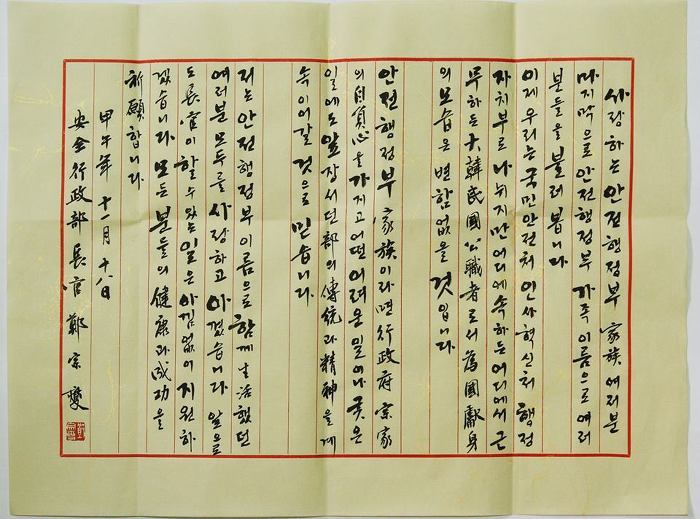 사랑하는 안전행정부 家族 여러분
마지막으로 안전행정부 가족 이름으로 여러
분들을 불러 봅니다
이제 우리는 국민안전처 인사혁신처 행정
자치부로 나뉘지만 어디에 속하든 어디에서 근
무하든 大韓民國 公職者로서 爲國獻身
의 모습은 변함없을 것입니다
안전행정부 家族이라면 行政府 宗家
의 自負心을 가지고 어떤 어려운 일이나 궂은
일에도 앞장서던 部의 傳統과 精神을 계
속 이어갈 것으로 믿습니다.
저는 안전행정부 이름으로 함께 生活했던
여러분 모두를 사랑하고 아꼈습니다 앞으로
도 長官이 할 수 있는 일은 아낌없이 지원하
겠습니다. 모든 분들의 健康과 成功을
祈願합니다.
甲午年 十一月 十八日
安全行政部 長官 鄭宗燮